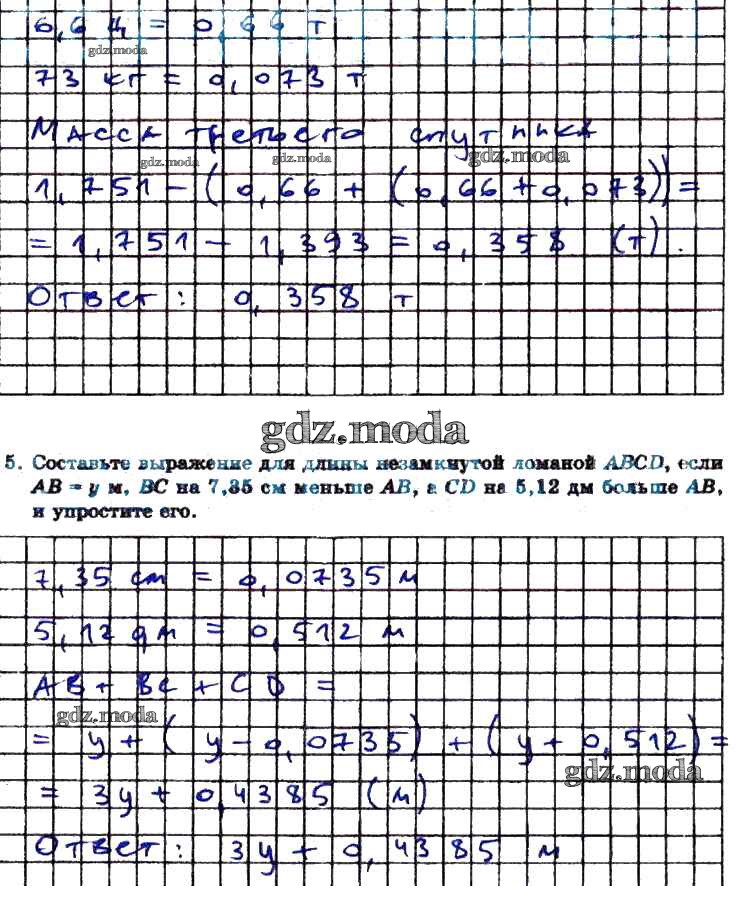 6,6 ц = 0,66 т
gdz.moda
73 кг = 0,073 т
Масса третьего спутника
gdz.moda gdz.moda gdz.moda
1,751 – (0,66 + (0,66 + 0,073)) =
= 1,751 – 1,393 = 0,358 (т).
Ответ: 0,358 т
gdz.moda
5. Составьте выражение для длины незамкнутой ломаной ABCD, если
AB = y м, BC на 7,35 см меньше AB, а CD на 5,12 дм больше AB,
и упростите его.
7,35 см = 0,0735 м
5,12 дм = 0,512 м
AB + BC + CD =
gdz.moda
= y + (y – 0,0735) + (y + 0,512) =
gdz.moda
= 3y + 0,4385 (м)
Ответ: 3y + 0,4385 м